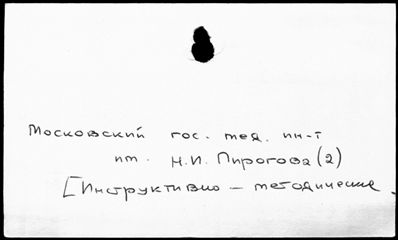 Московский гос. мед. ин-т
им. Н.И. Пирогова (2)
[Инструктивно – методические